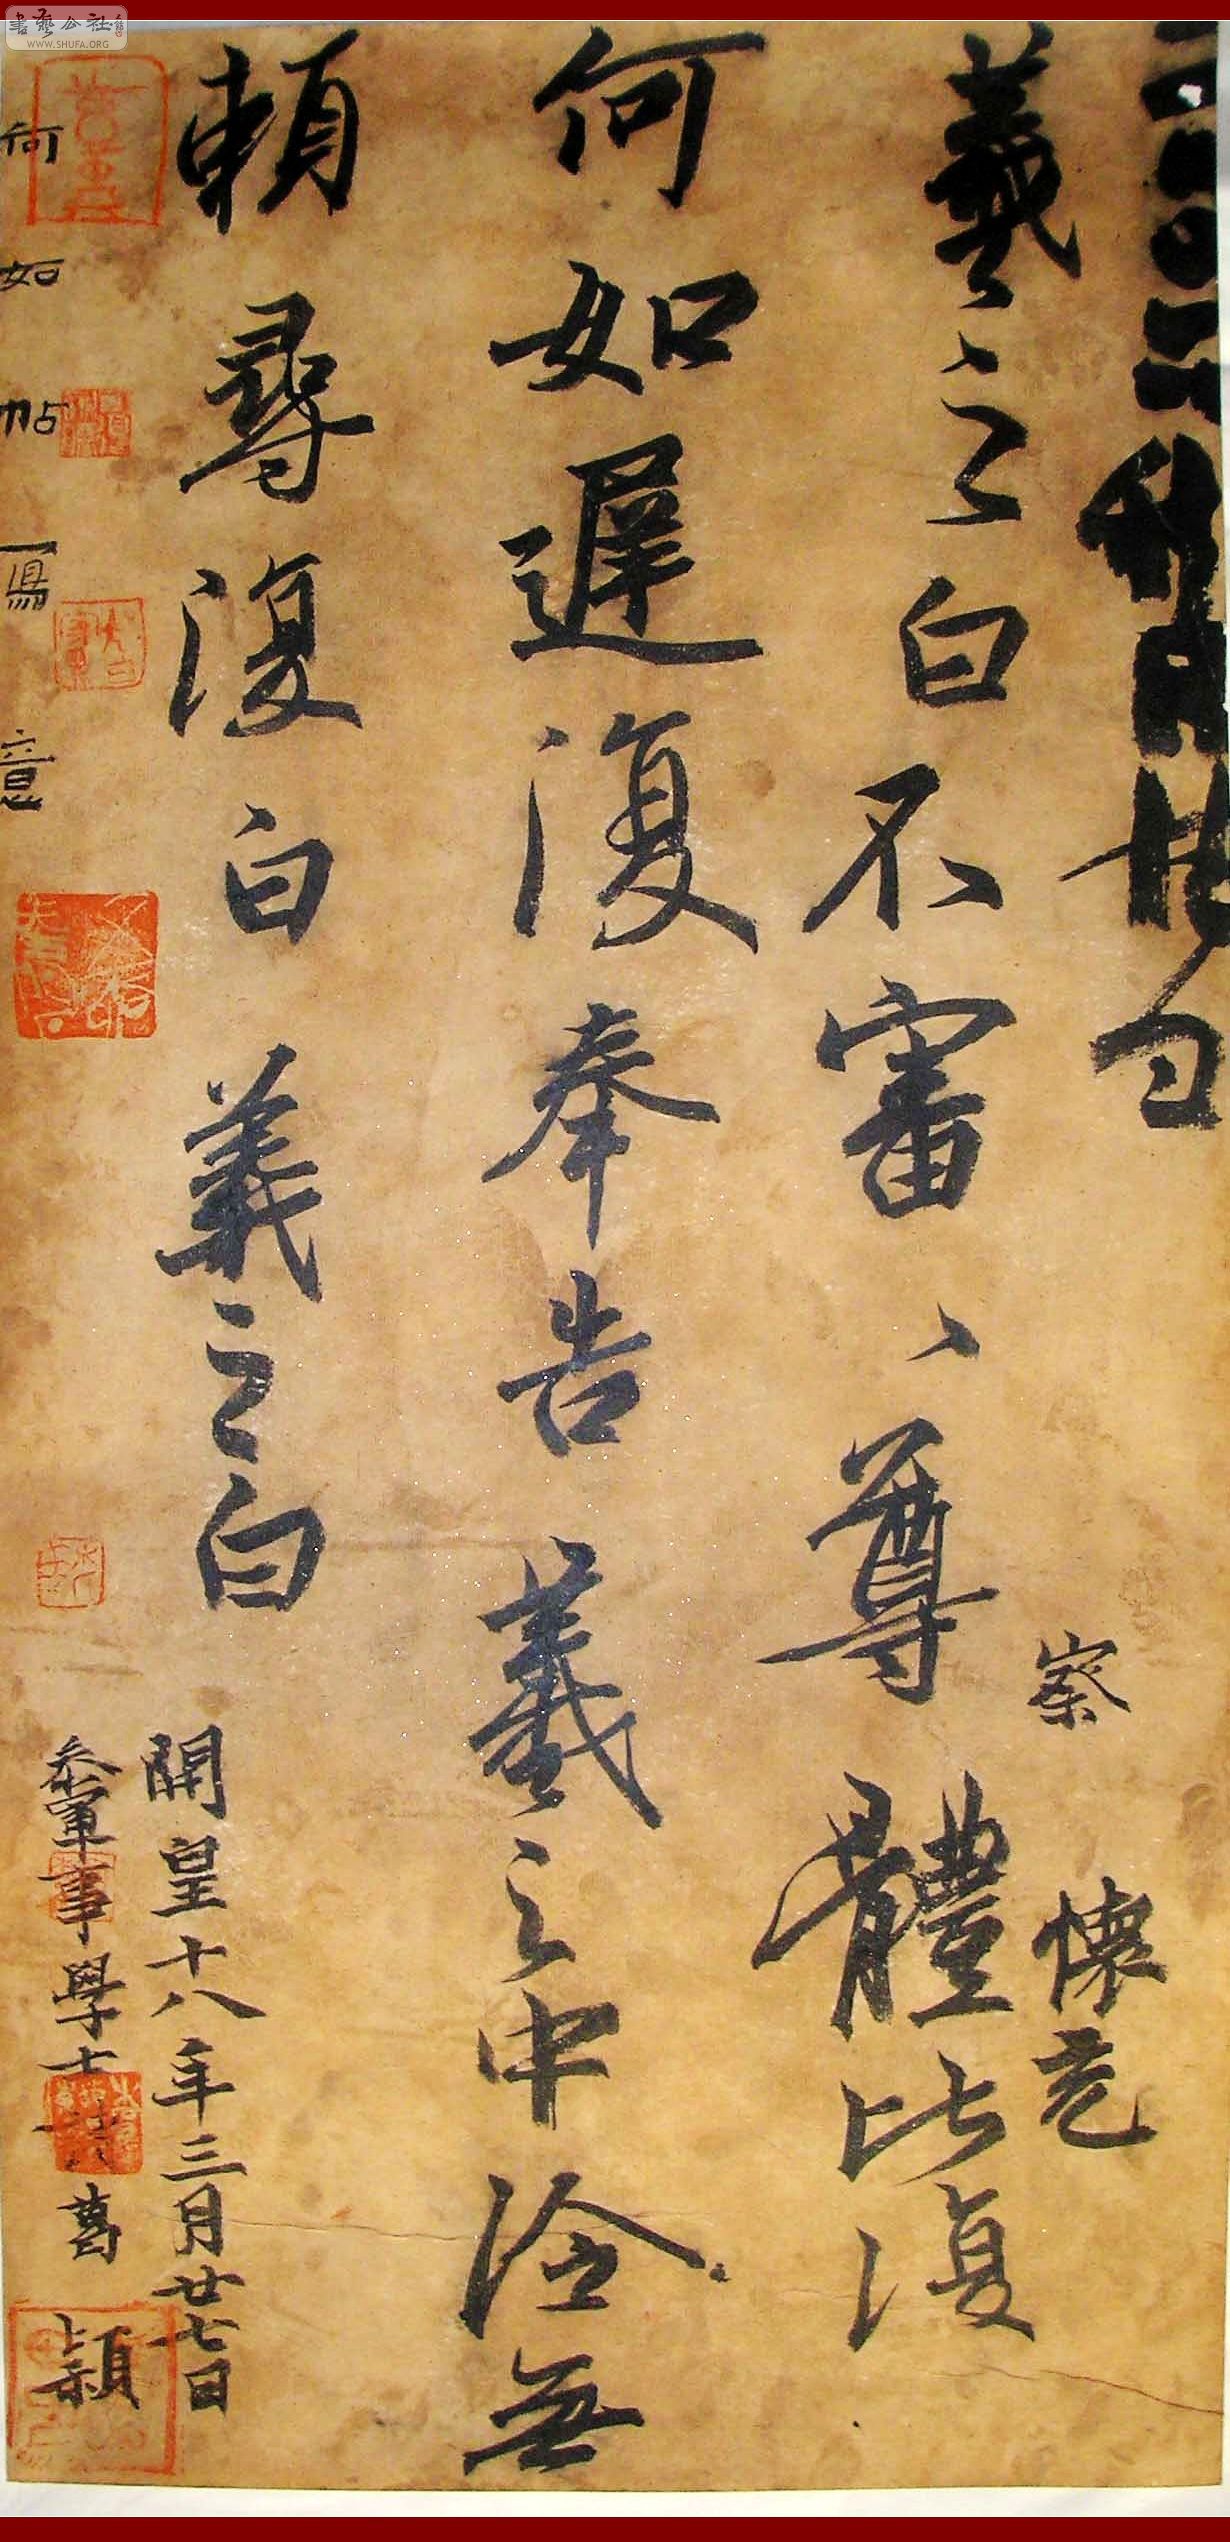 羲之白不審、尊體比復
察 懷充
何如遲復奉告羲之中冷無
賴尋復白羲之白
開皇十八年三月廿七日
參軍事學士諸葛穎
何如帖寫意
書藝公社
WWW.SHUFA.ORG